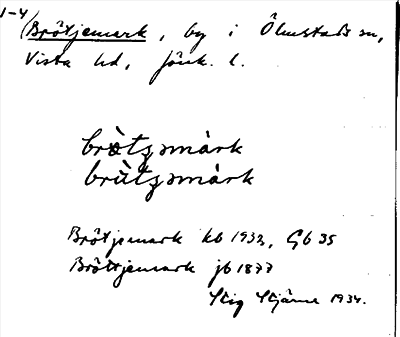 1-4) Brötjemark, by i Ölmstads sn,
Vista hd, Jönk. l.
brötʒmàrk
brùtʒmàrk
Brötjemark kb 1933, Gb 35
Bröttjemark jb 1877
Stig Stjärne 1934.